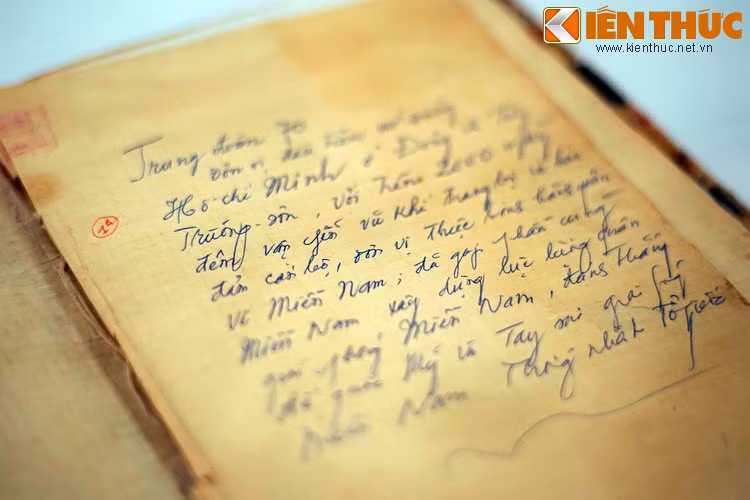 KIẾN THỨC
www.kienthuc.net.vn
Trung đoàn 70
đơn vị đầu tiên mở đường
Hồ Chí Minh ở Đông và Tây
Trường Sơn, với trên 2000 ngày
đêm vận chuyển vũ khí trang bị và bảo
đảm cán bộ, đơn vị thọc hàng quân
về Miền Nam; đã góp phần cùng
Miền Nam xây dựng lực lượng quân
giải phóng Miền Nam, đánh thắng
đế quốc Mỹ và Tay sai giải phóng
Miền Nam Thống nhất Tổ quốc
1a